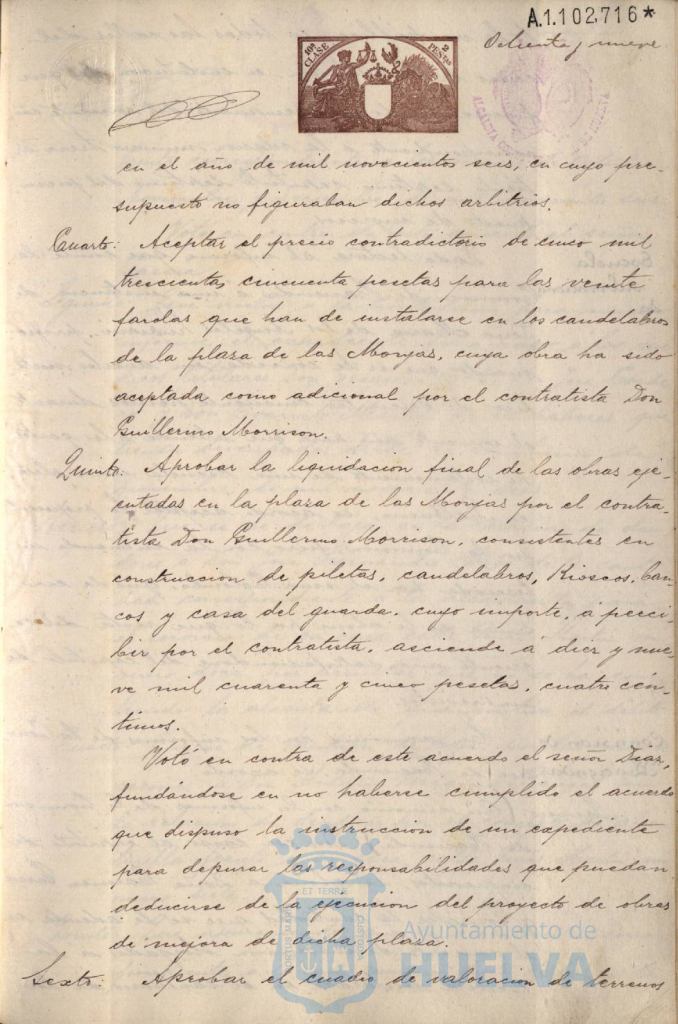 A.1.102,716*
Ochenta y nueve
10ª CLASE
2 PESETAS
en el año de mil novecientos seis, en cuyo pre-
supuesto no figuraban dichos arbitrios.
Cuarto: Aceptar el precio contradictorio de cinco mil
trescientas cincuenta pesetas para las veinte
farolas que han de instalarse en los candelabros
de la plaza de las Monjas, cuya obra ha sido
aceptada como adicional por el contratista Don
Guillermo Morrison.
Quinto: Aprobar la liquidacion final de las obras eje-
cutadas en la plaza de las Monjas por el contra-
tista Don Guillermo Morrison, consistentes en
construccion de piletas, candelabros, Kioscos, ban-
cos y casa del guarda, cuyo importe, á perci-
bir por el contratista, asciende á diez y nue-
ve mil cuarenta y cinco pesetas, cuatro cén-
timos.
Votó en contra de este acuerdo el señor Diaz,
fundándose en no haberse cumplido el acuerdo
que dispuso la instruccion de un expediente
para depurar las responsabilidades que puedan
deducirse de la ejecucion del proyecto de obras
de mejora de dicha plaza.
Sexto: Aprobar el cuadro de valoracion de terrenos
ET TERRE
PORTUS MARIS
CUSTODIA
Ayuntamiento de
HUELVA